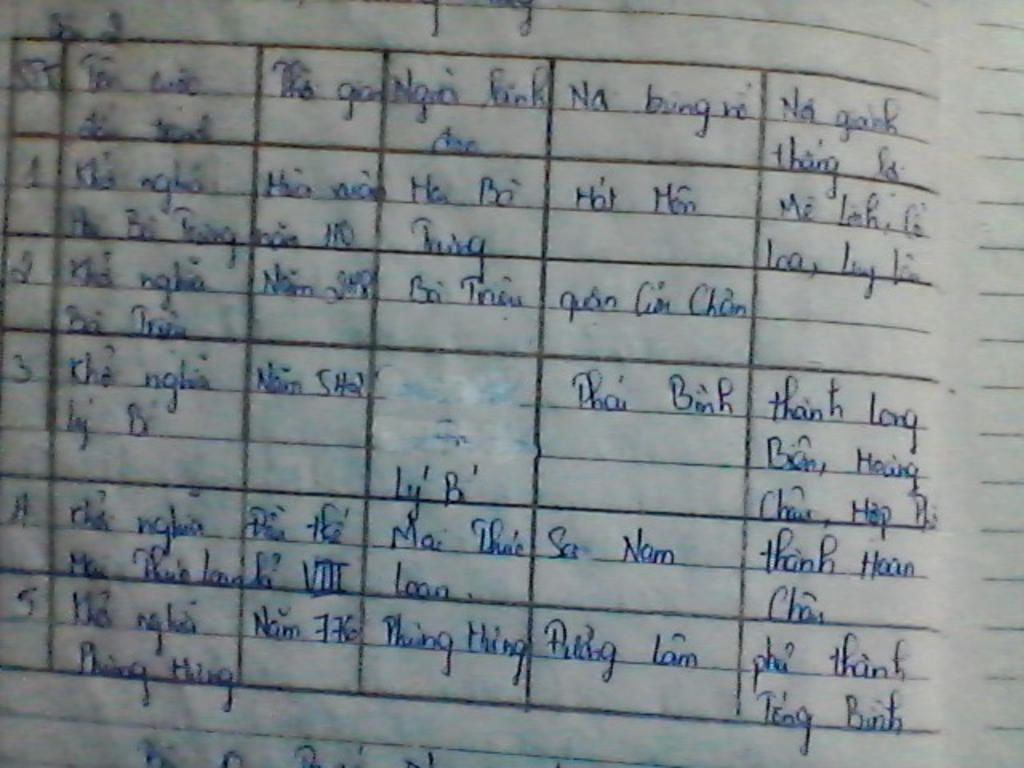 STT Tên cuộc Thời gian Người lãnh Nơi bùng nổ Nơi giành
đấu tranh đạo thắng lợi
1 Khởi nghĩa Mùa xuân Hai Bà Hát Môn Mê Linh, Cổ
Hai Bà Trưng năm 40 Trưng Loa, Luy Lâu
2 Khởi nghĩa Năm 248 Bà Triệu quận Cửu Chân
Bà Triệu
3 Khởi nghĩa Năm 542 Thái Bình thành Long
Lý Bí Biên, Hoàng
Lý Bí Châu, Hợp
4 Khởi nghĩa Đầu thế Mai Thúc Sa Nam thành Hoan
Mai Thúc Loan kỉ VIII Loan. Châu
5 Khởi nghĩa Năm 776 Phùng Hưng Đường Lâm phủ thành
Phùng Hưng Tống Bình